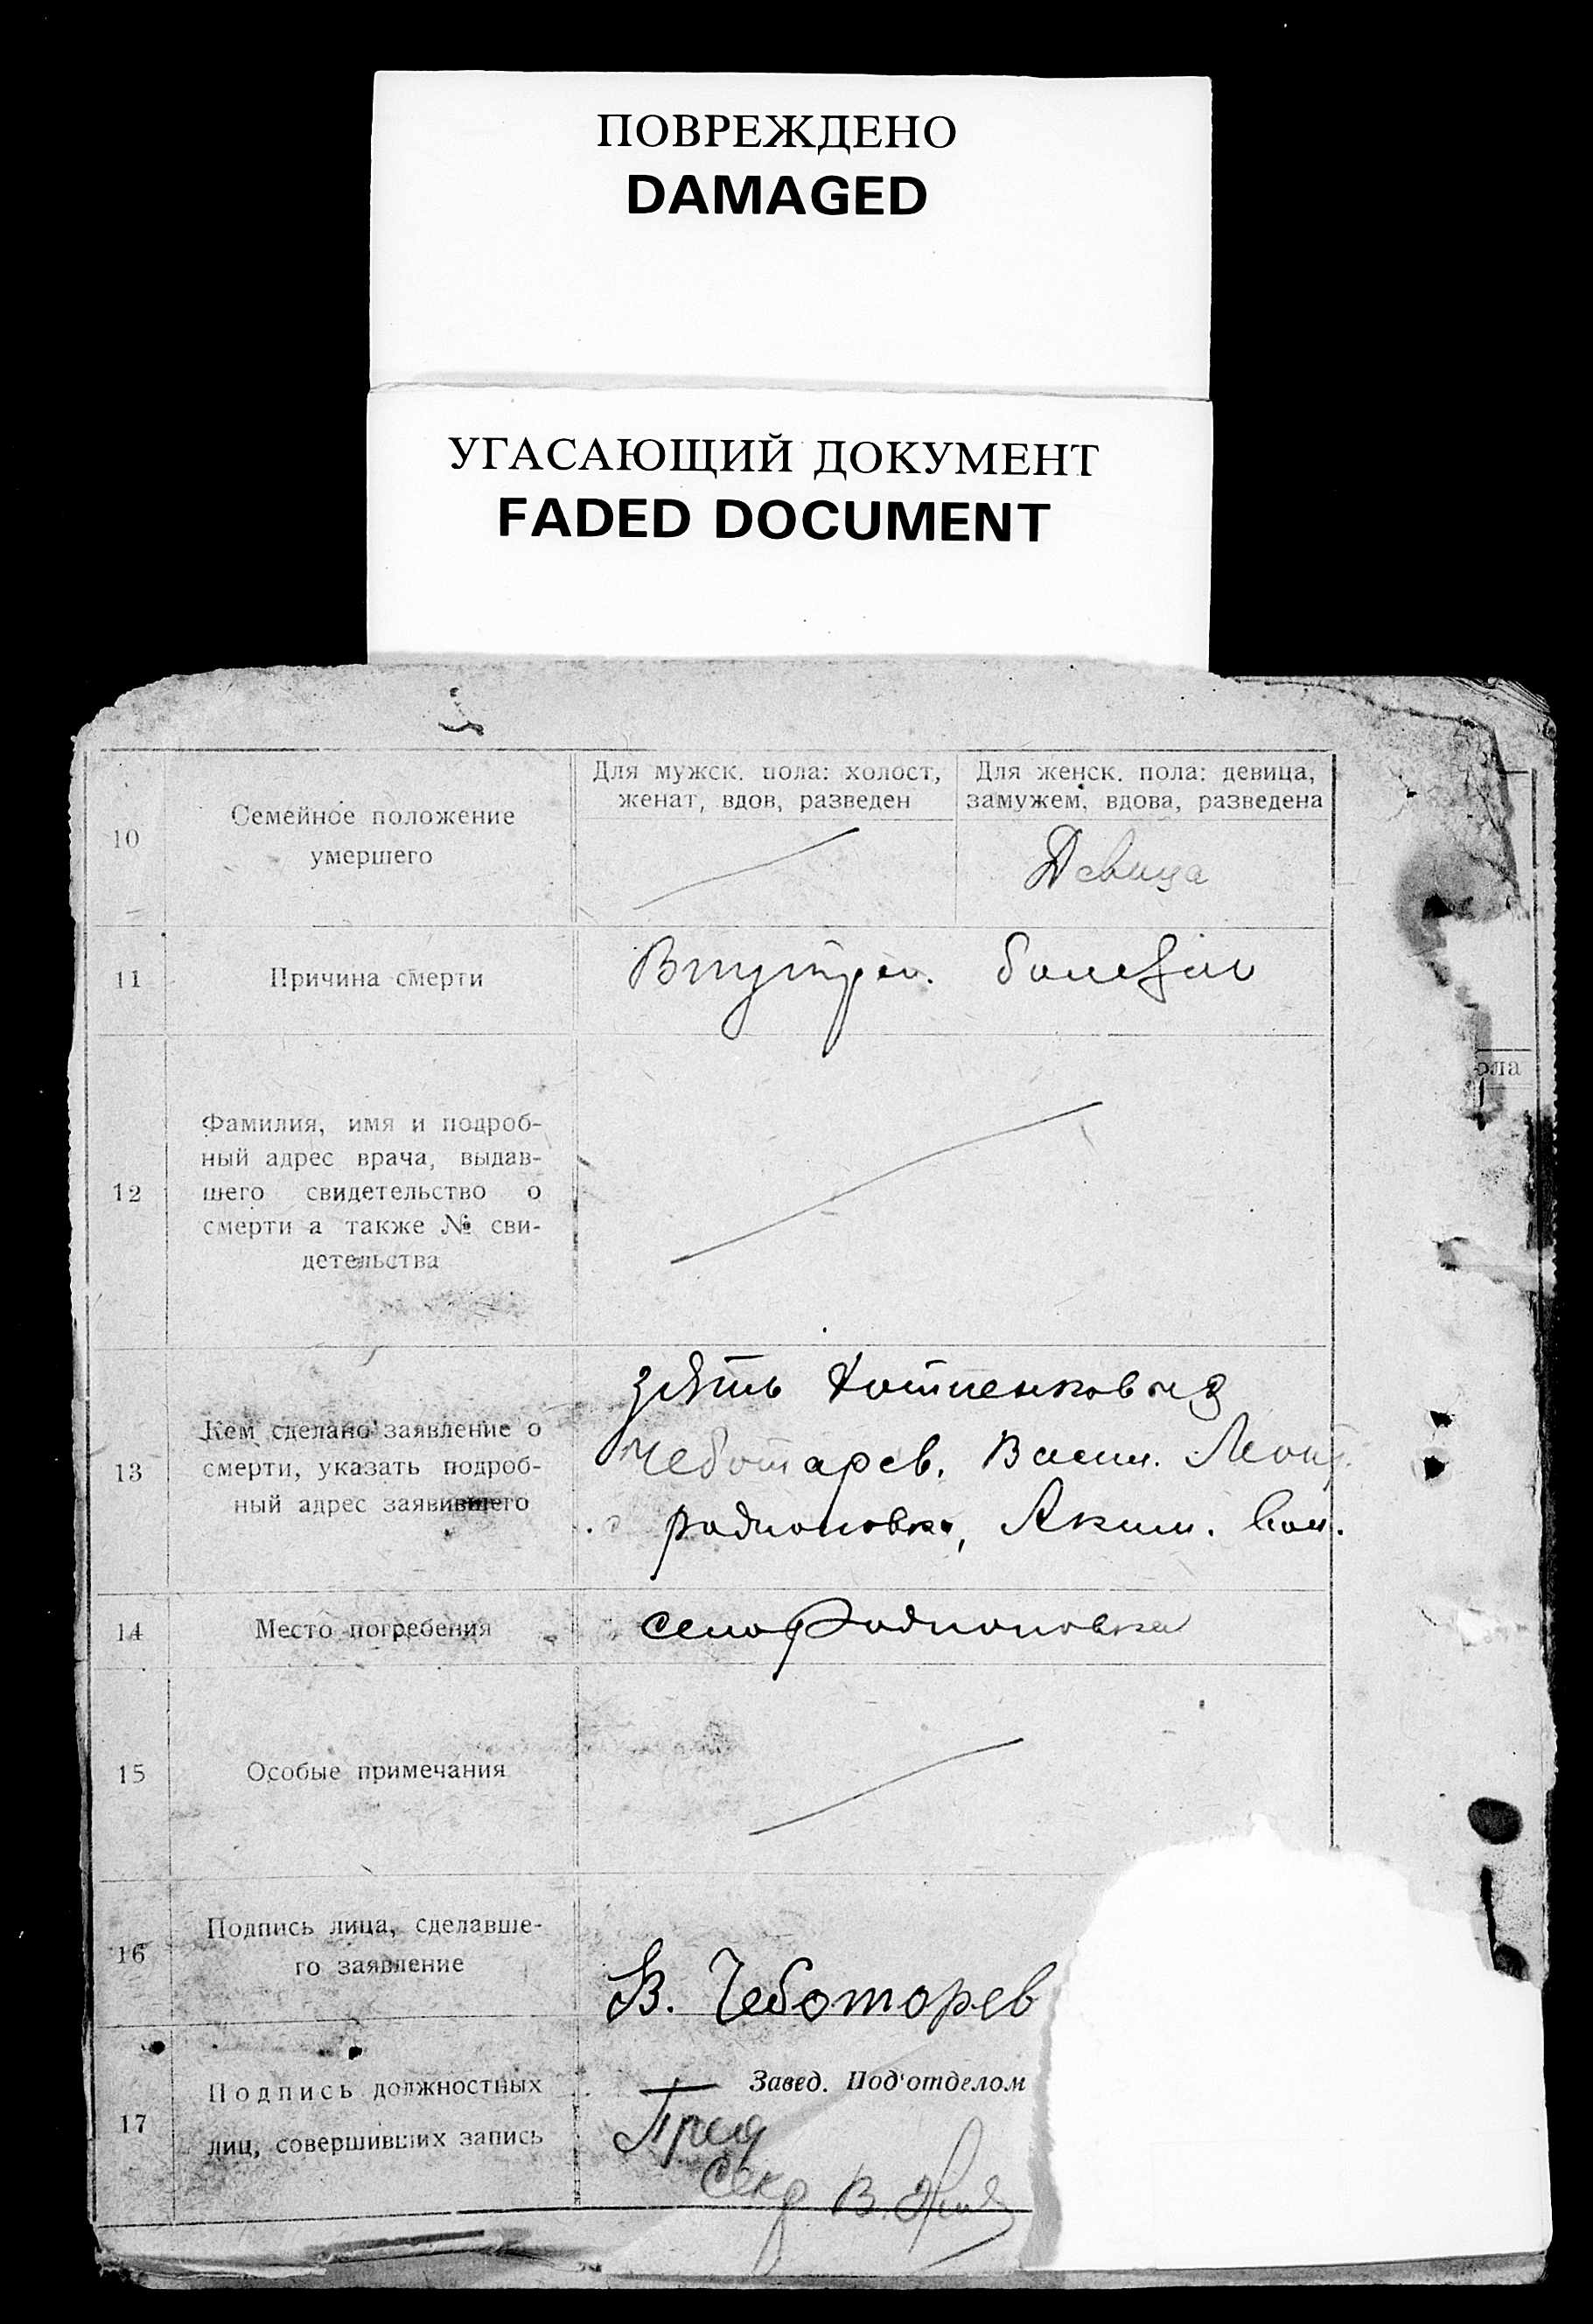 ПОВРЕЖДЕНО
DAMAGED
УГАСАЮЩИЙ ДОКУМЕНТ
FADED DOCUMENT
10 Семейное положение умершего
Для мужск. пола: холост,
женат, вдов, разведен
Для женск. пола: девица,
замужем, вдова, разведена
Девица
11 Причина смерти
Внутрен. болезни
12 Фамилия, имя и подроб-
ный адрес врача, выдав-
шего свидетельство о
смерти а также № сви-
детельства
13 Кем сделано заявление о
смерти, указать подроб-
ный адрес заявившего
зять
Чеботарев. Васил.
Родионовка, Аким.
14 Место погребения
село Родионовка
15 Особые примечания
16 Подпись лица, сделавше-
го заявление
В. Чеботорев
17 Подпись должностных
лиц, совершивших запись
Завед. Под'отделом
Пред
Секр В.
ола